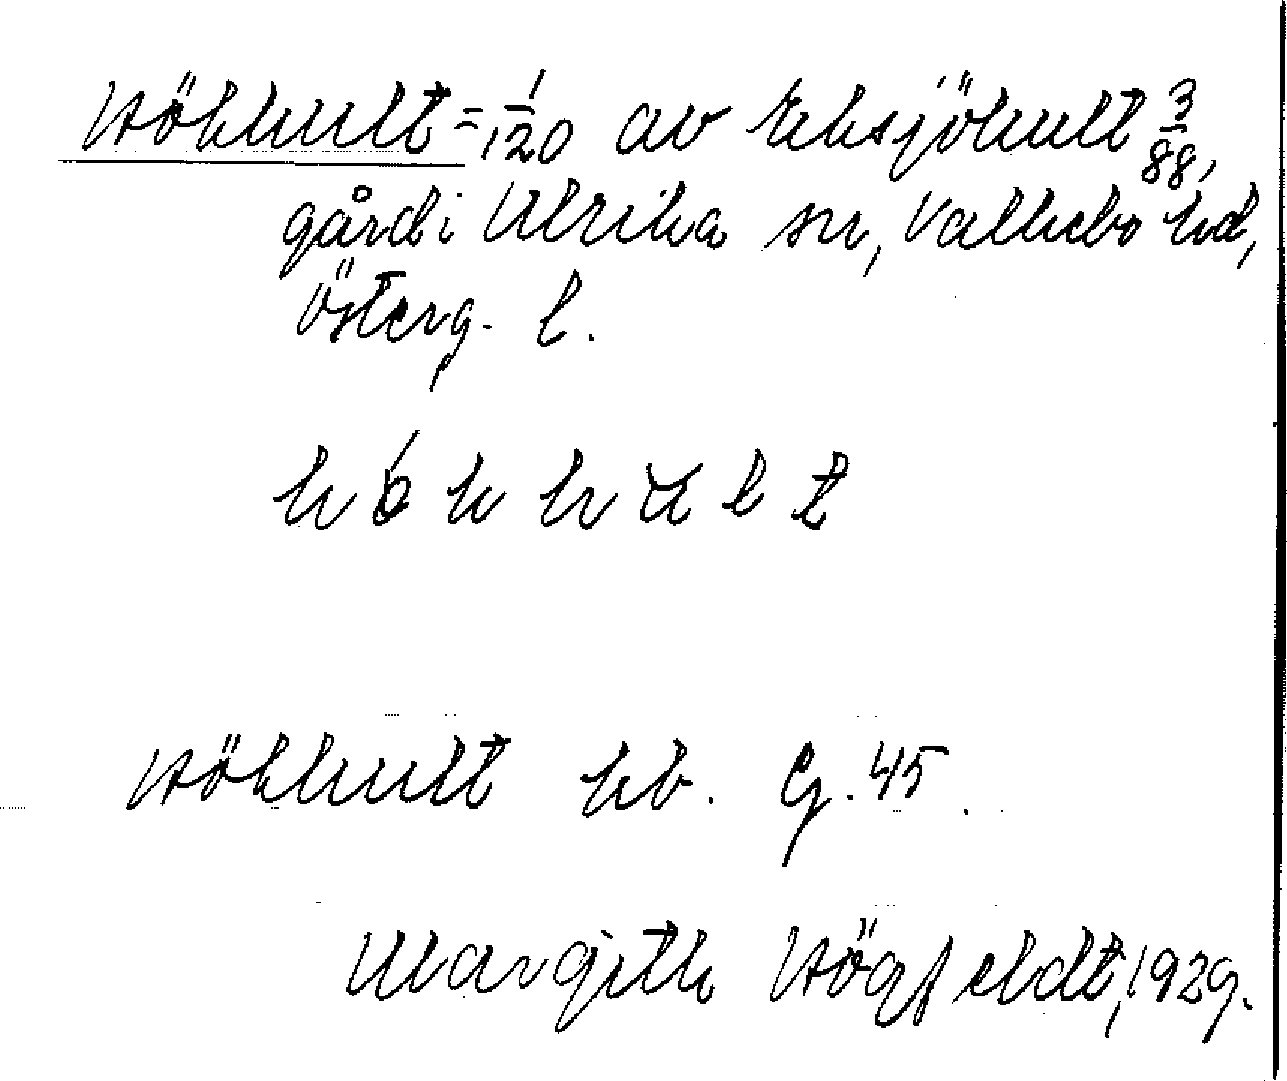 Hökhult = 1/120 av Eksjöhult 3/88,
gård i Ulrika sn, Valkebo hd,
Österg. l.
h ǿ k h u l t
Hökhult kb. G. 45.
Margith Högfeldt, 1929.